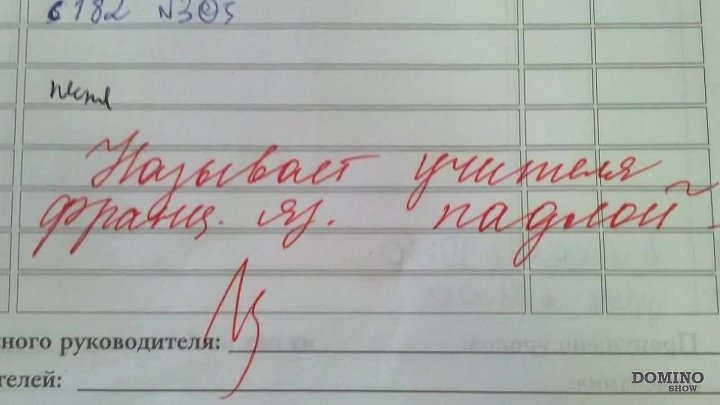 с 182 N305
песня
Называет учителя
франц. яз. падлой
ного руководителя:
телей:
DOMINO
SHOW